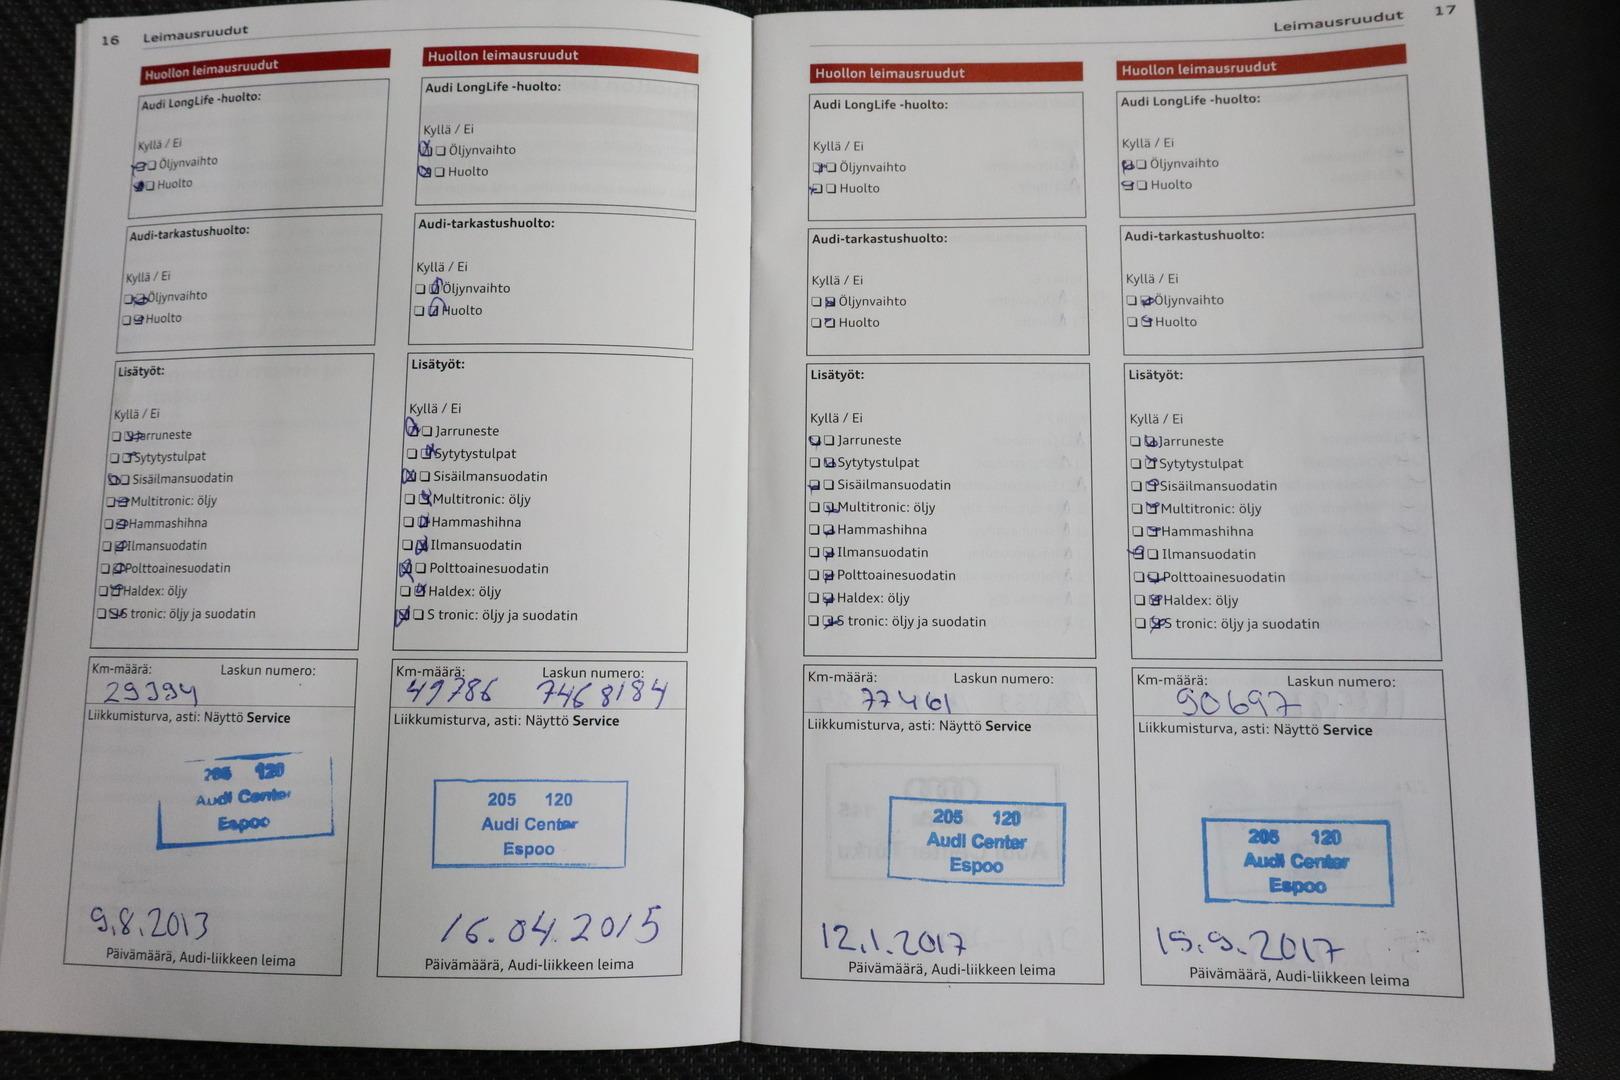 16 Leimausruudut
Huollon leimausruudut
Audi LongLife -huolto:
Kyllä / Ei
Öljynvaihto
Huolto
Audi-tarkastushuolto:
Kyllä / Ei
Öljynvaihto
Huolto
Lisätyöt:
Kyllä / Ei
Jarruneste
Sytytystulpat
Sisäilmansuodatin
Multitronic: öljy
Hammashihna
Ilmansuodatin
Polttoainesuodatin
Haldex: öljy
S tronic: öljy ja suodatin
Km-määrä: Laskun numero:
29394
Liikkumisturva, asti: Näyttö Service
205 120
Audi Center
Espoo
9.8.2013
Päivämäärä, Audi-liikkeen leima
Huollon leimausruudut
Audi LongLife -huolto:
Kyllä / Ei
Öljynvaihto
Huolto
Audi-tarkastushuolto:
Kyllä / Ei
Öljynvaihto
Huolto
Lisätyöt:
Kyllä / Ei
Jarruneste
Sytytystulpat
Sisäilmansuodatin
Multitronic: öljy
Hammashihna
Ilmansuodatin
Polttoainesuodatin
Haldex: öljy
S tronic: öljy ja suodatin
Km-määrä: Laskun numero:
49786 7468184
Liikkumisturva, asti: Näyttö Service
205 120
Audi Center
Espoo
16.04.2015
Päivämäärä, Audi-liikkeen leima
Leimausruudut 17
Huollon leimausruudut
Audi LongLife -huolto:
Kyllä / Ei
Öljynvaihto
Huolto
Audi-tarkastushuolto:
Kyllä / Ei
Öljynvaihto
Huolto
Lisätyöt:
Kyllä / Ei
Jarruneste
Sytytystulpat
Sisäilmansuodatin
Multitronic: öljy
Hammashihna
Ilmansuodatin
Polttoainesuodatin
Haldex: öljy
S tronic: öljy ja suodatin
Km-määrä: Laskun numero:
77461
Liikkumisturva, asti: Näyttö Service
205 120
Audi Center
Espoo
12.1.2017
Päivämäärä, Audi-liikkeen leima
Huollon leimausruudut
Audi LongLife -huolto:
Kyllä / Ei
Öljynvaihto
Huolto
Audi-tarkastushuolto:
Kyllä / Ei
Öljynvaihto
Huolto
Lisätyöt:
Kyllä / Ei
Jarruneste
Sytytystulpat
Sisäilmansuodatin
Multitronic: öljy
Hammashihna
Ilmansuodatin
Polttoainesuodatin
Haldex: öljy
S tronic: öljy ja suodatin
Km-määrä: Laskun numero:
90697
Liikkumisturva, asti: Näyttö Service
205 120
Audi Center
Espoo
15.9.2017
Päivämäärä, Audi-liikkeen leima